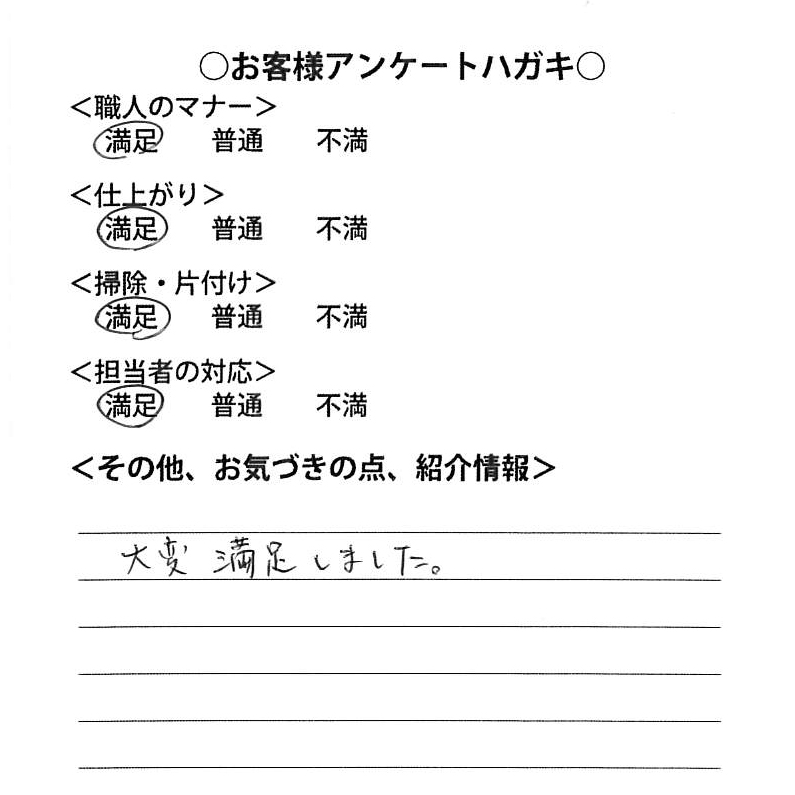 ○お客様アンケートハガキ○
＜職人のマナー＞
満足 普通 不満
＜仕上がり＞
満足 普通 不満
＜掃除・片付け＞
満足 普通 不満
＜担当者の対応＞
満足 普通 不満
＜その他、お気づきの点、紹介情報＞
大変 満足しました。